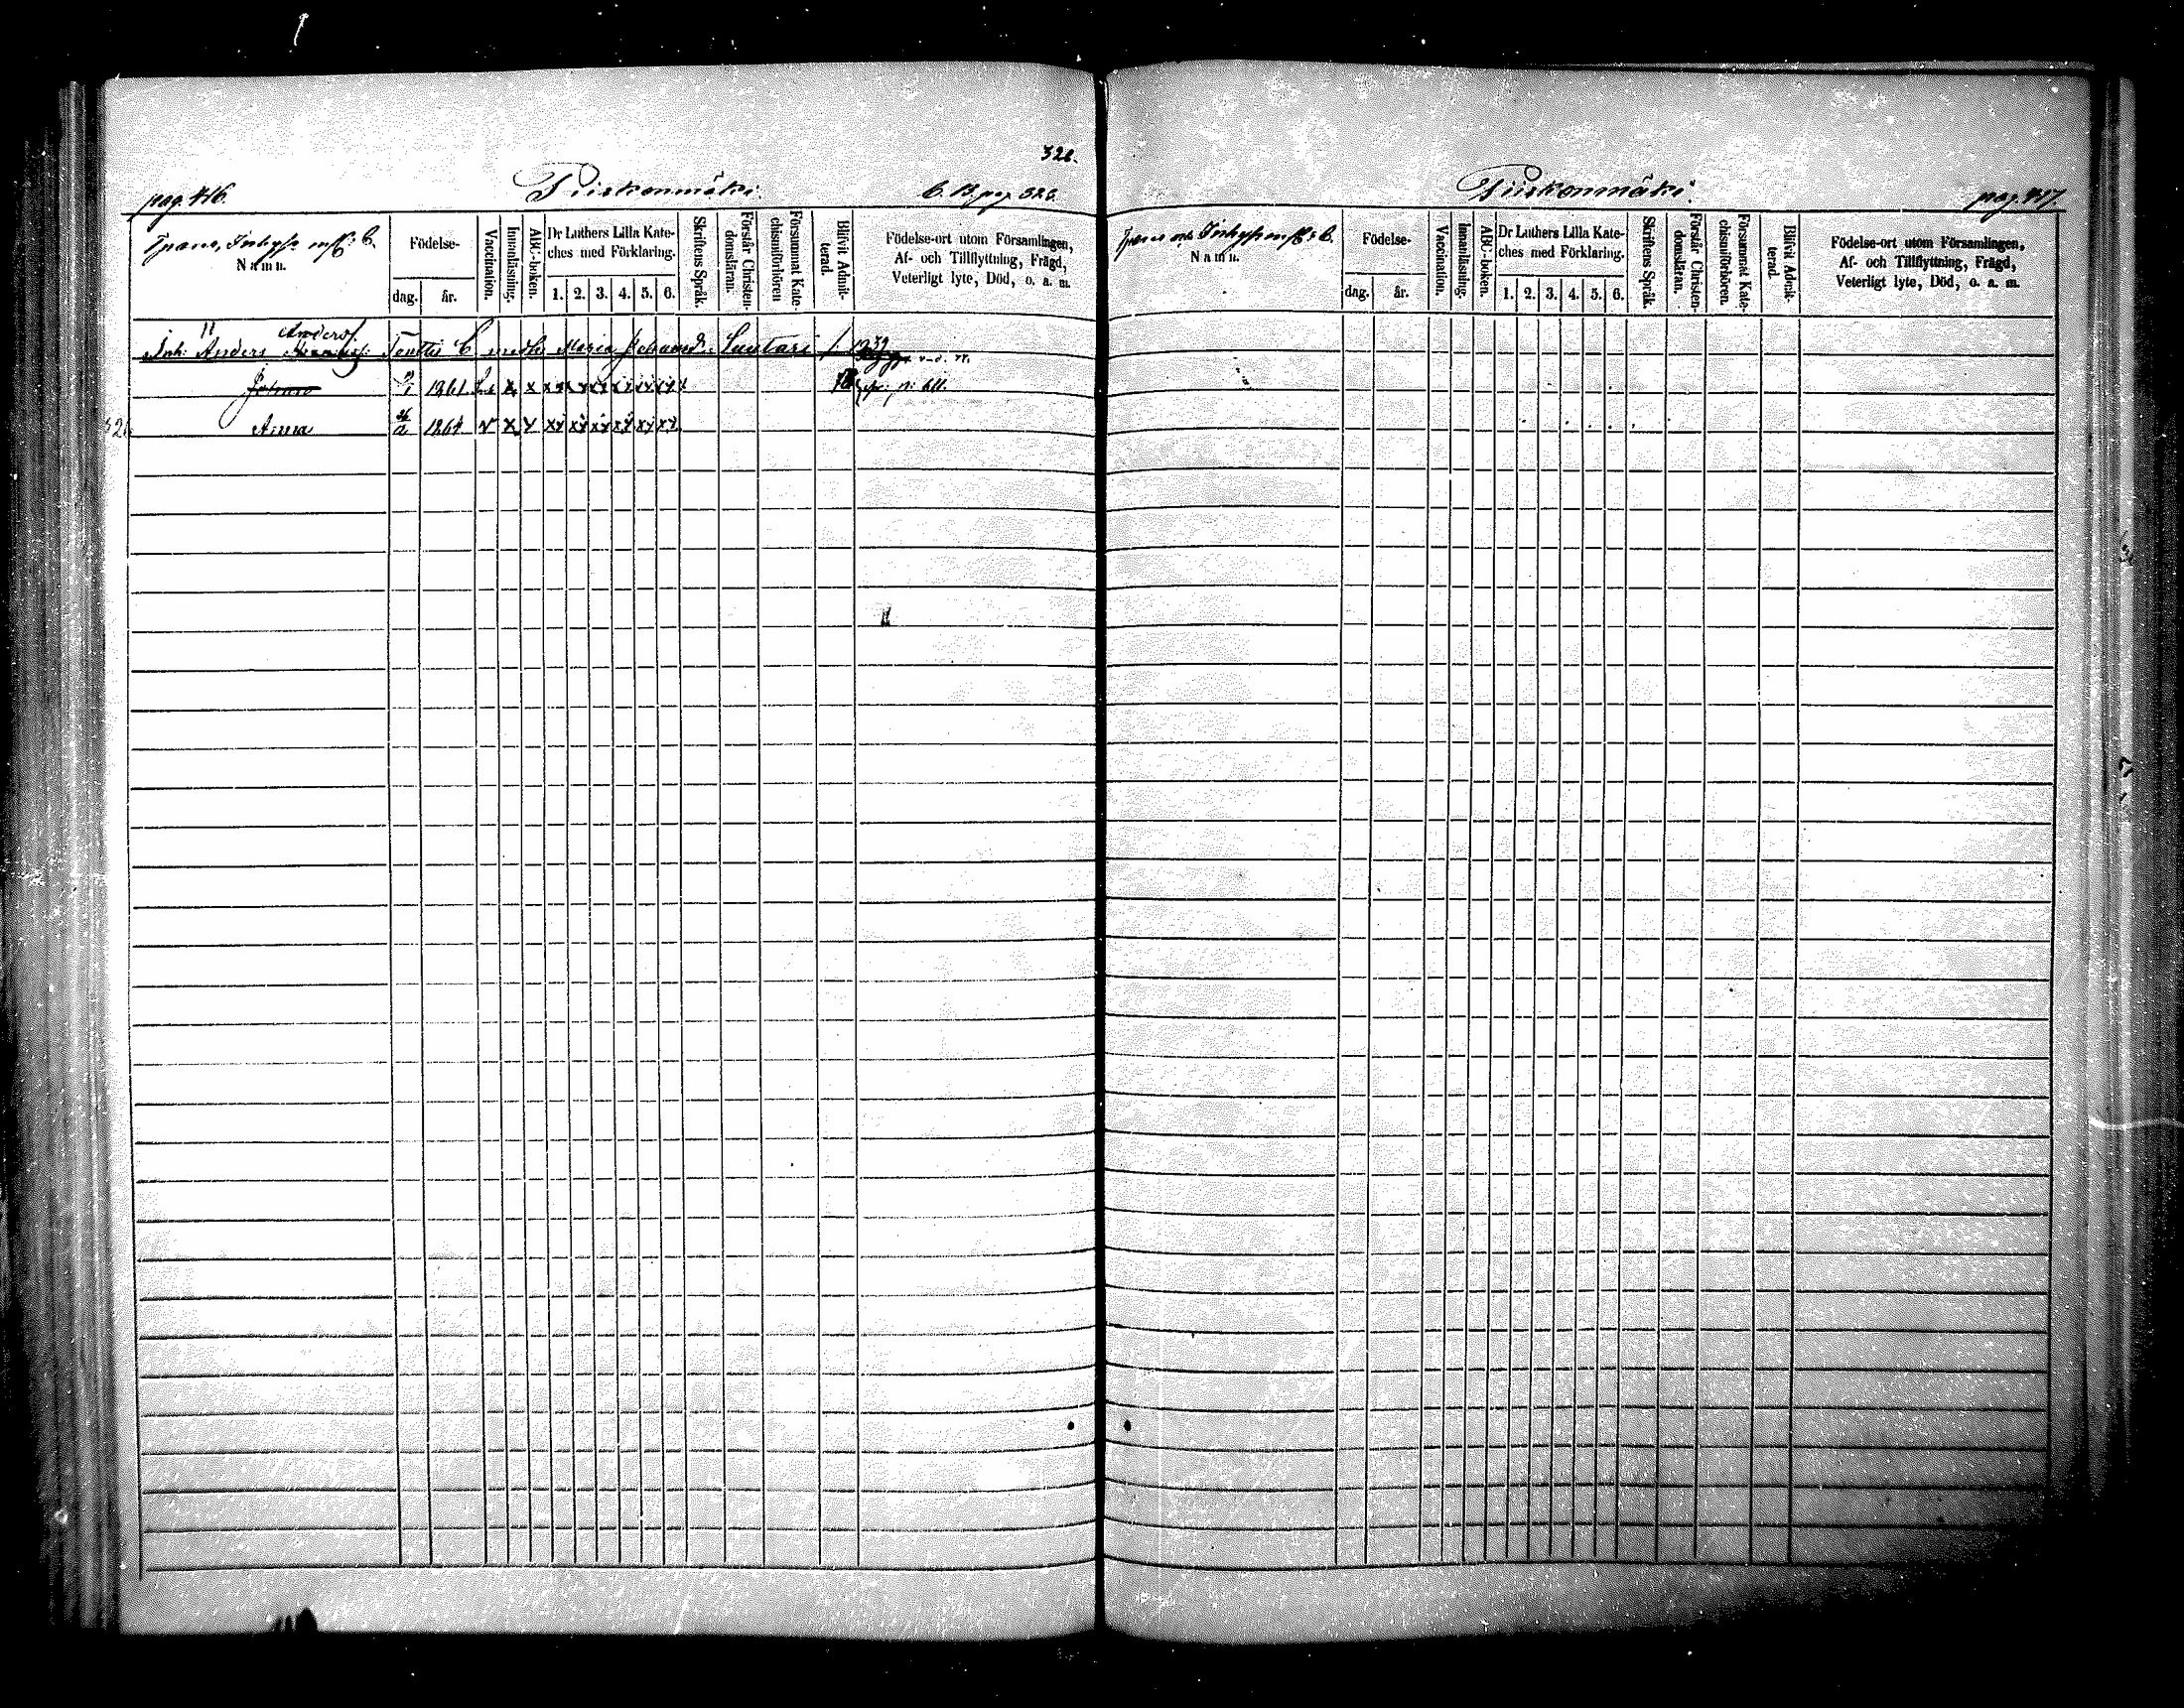 326.
pag. 416. Piiskonmäki. C. B. pag. 326.
Namn. Födelse- dag. år. Vaccination. Innanläsning. ABC-boken. Dr Luthers Lilla Kateches med Förklaring. 1. 2. 3. 4. 5. 6. Skriftens Språk. Förstår Christendomsläran. Försummat Katechismiförhören Blifvit Admitterad. Födelse-ort utom Församlingen, Af- och Tillflyttning, Frägd, Veterligt lyte, Död, o. a. m.
Inh. Anders Anderss. C med h. Maria Johansdr.
Johan 1861 x x x x x x x x
326 Anna 26 1864 v x x x x x x x x
Piiskonmäki. pag. 417.
Namn. Födelse- dag. år. Vaccination. Innanläsning. ABC-boken. Dr Luthers Lilla Kateches med Förklaring. 1. 2. 3. 4. 5. 6. Skriftens Språk. Förstår Christendomsläran. Försummat Katechismiförhören. Blifvit Admitterad. Födelse-ort utom Församlingen, Af- och Tillflyttning, Frägd, Veterligt lyte, Död, o. a. m.